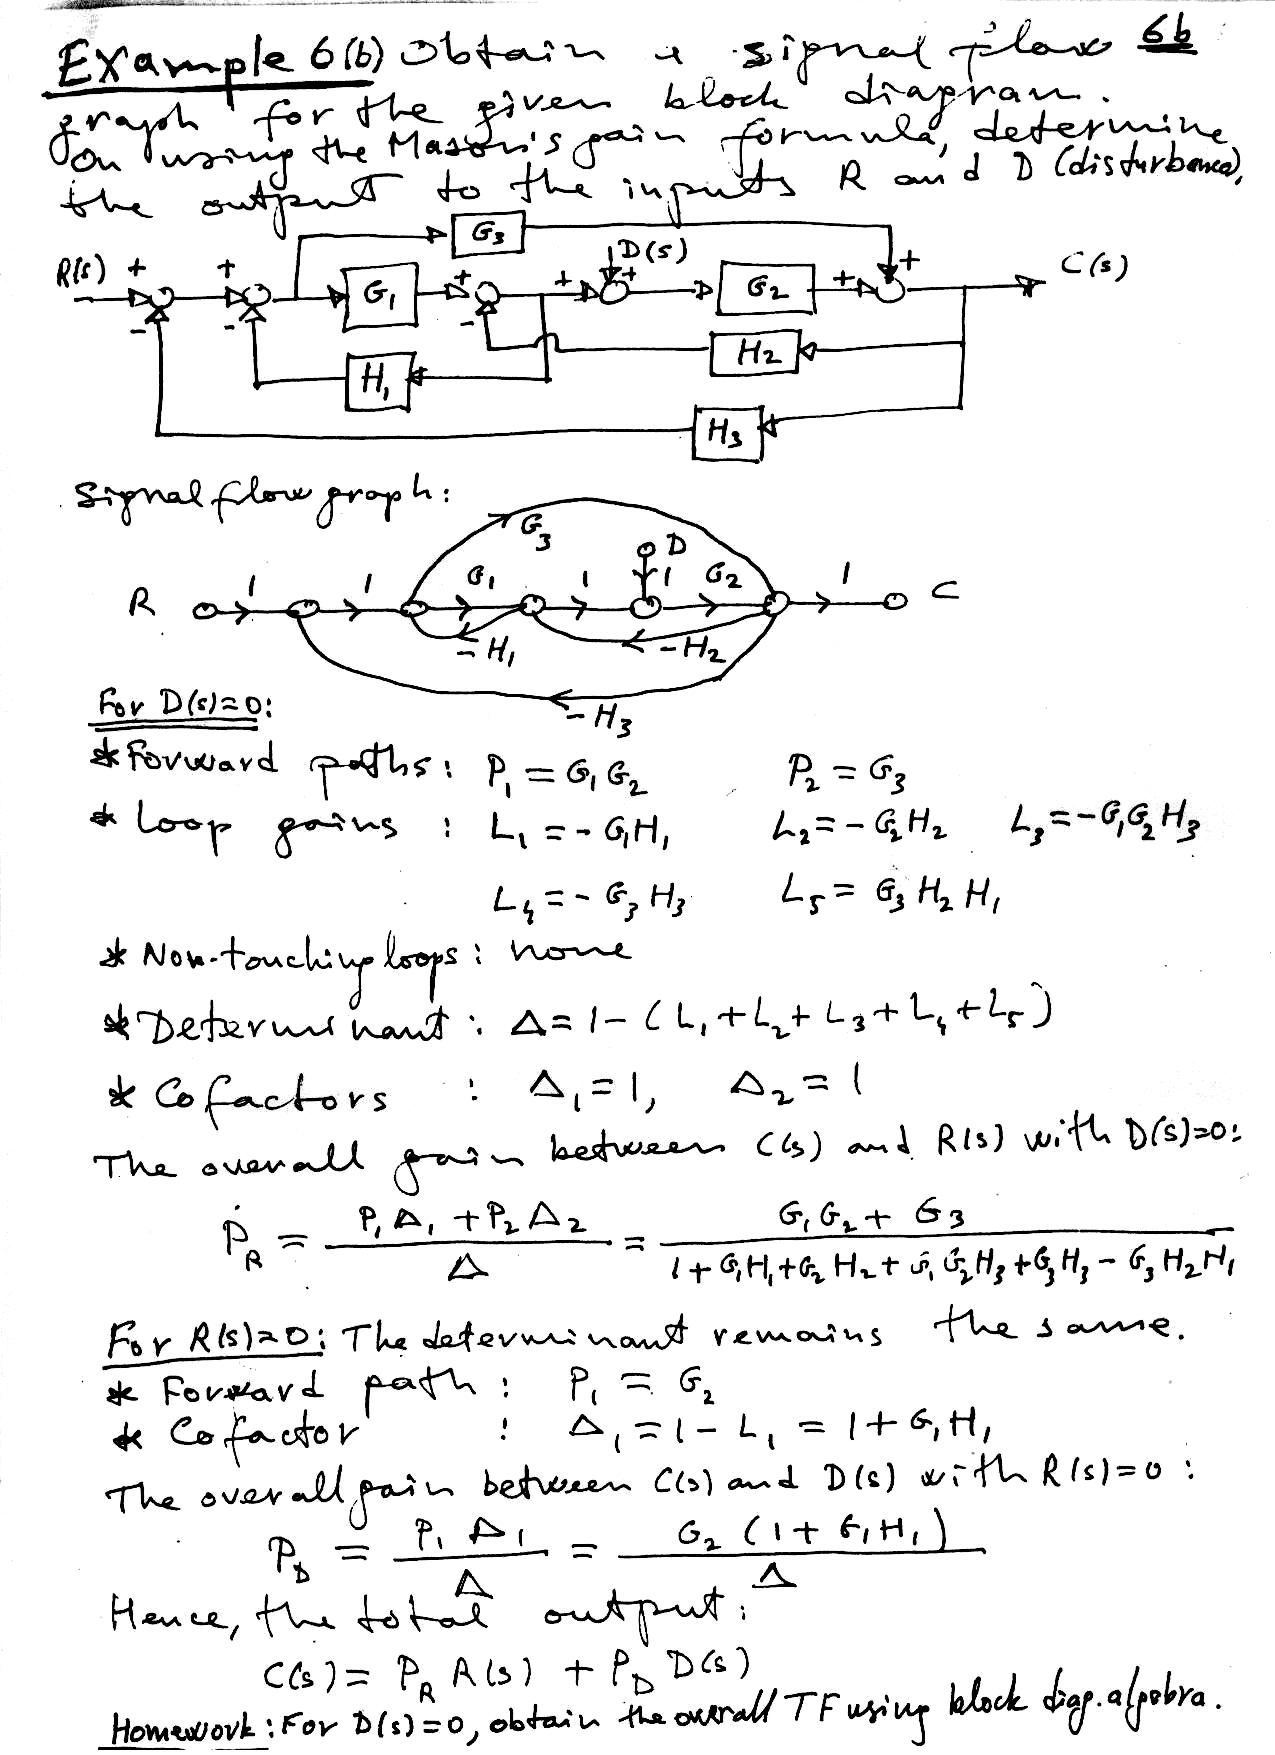 Example 6(b) Obtain a signal flow 6b
graph for the given block diagram.
On using the Mason's gain formula, determine
the output to the inputs R and D (disturbance),
G3
D(s)
R(s) + + + + + + +
C(s)
G1 G2
- - -
H2
H1
H3
Signal flow graph:
G3
D
R 1 1 G1 1 1 G2 1 C
-H1 -H2
-H3
For D(s)=0:
* Forward paths: P1 = G1 G2 P2 = G3
* Loop gains : L1 = - G1H1 L2 = - G2 H2 L3 = -G1G2 H3
L4 = - G3 H3 L5 = G3 H2 H1
* Non-touching loops: none
* Determinant: Δ = 1-(L1+L2+L3+L4+L5)
* Cofactors : Δ1 = 1, Δ2 = 1
The overall gain between C(s) and R(s) with D(s)=0:
PR = P1 Δ1 + P2 Δ2 / Δ = G1 G2 + G3 / 1+ G1H1+G2 H2+ G1 G2H3+G3 H3 - G3 H2H1
For R(s)=0: The determinant remains the same.
* Forward path: P1 = G2
* Cofactor : Δ1 = 1 - L1 = 1+G1H1
The overall gain between C(s) and D(s) with R(s)=0 :
PD = P1 Δ1 / Δ = G2 (1+ G1H1) / Δ
Hence, the total output:
C(s) = PR R(s) + PD D(s)
Homework: For D(s)=0, obtain the overall TF using block diag. algebra.